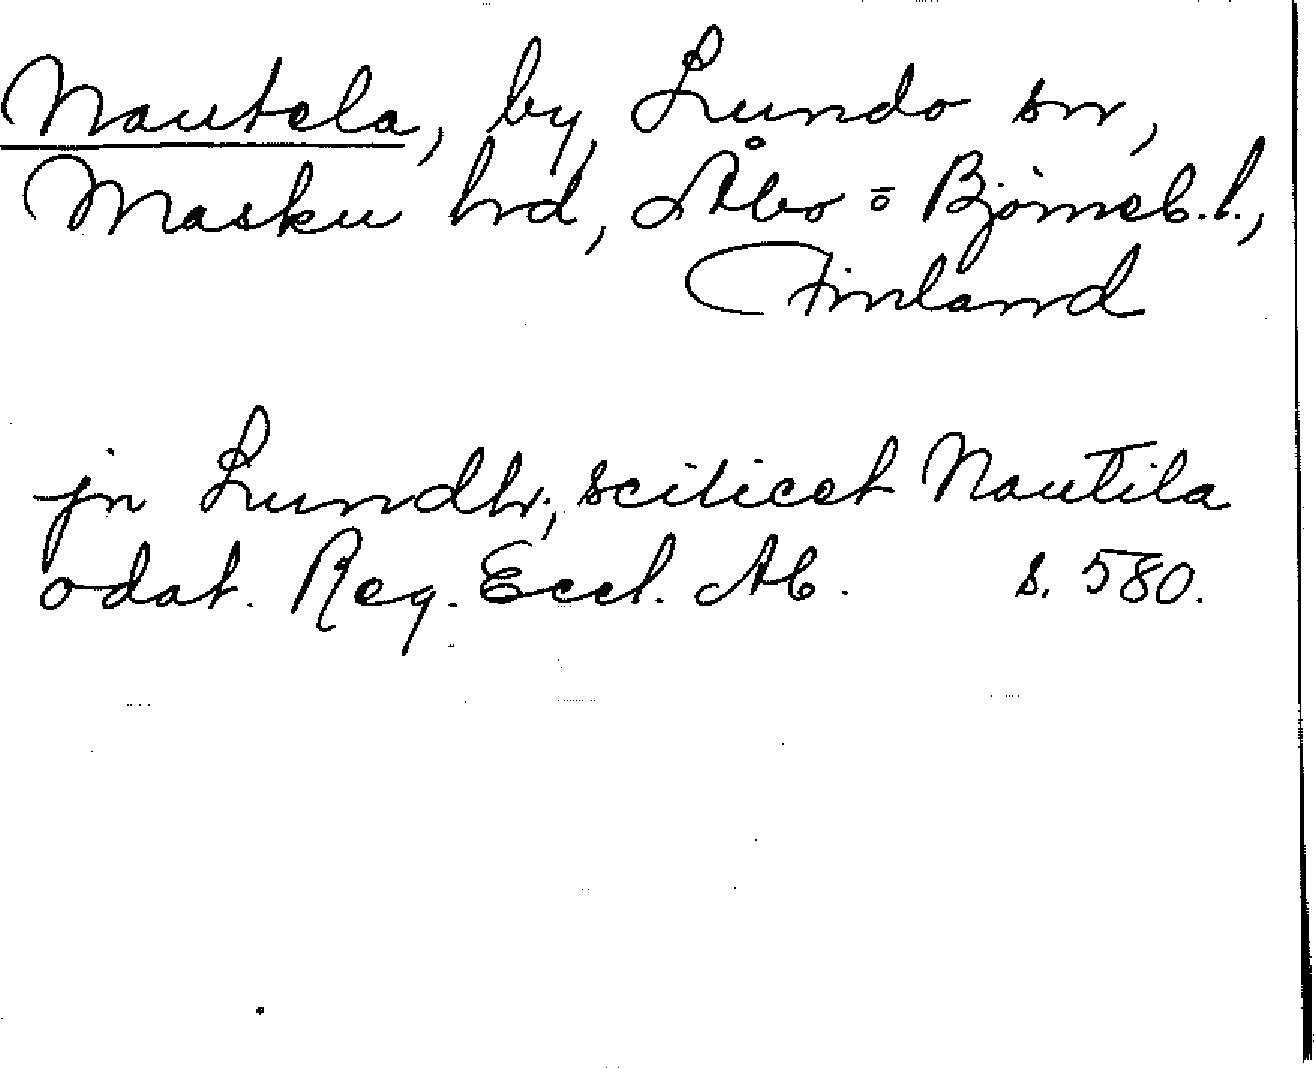 Nautela, by, Lundo sn,
Masku hrd, Åbo = Björneb. l.,
Finland
jn Lundh, scilicet Nautila
odat. Reg. Eccl. Ab. s. 580.